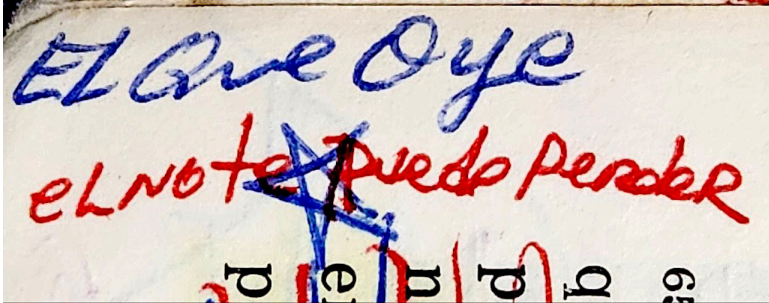 EL Que Oye
eL No te Puedo PerdeR
p e u p q 69